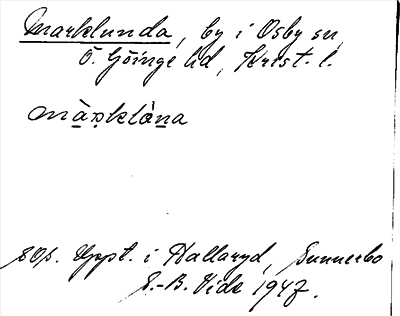 Marklunda, by i Osby sn,
Ö. Göinge hd, Krist. l.
màṣklàna
sOp. Uppt. i Hallaryd, Sunnerbo
S.-B. Vide 1947.